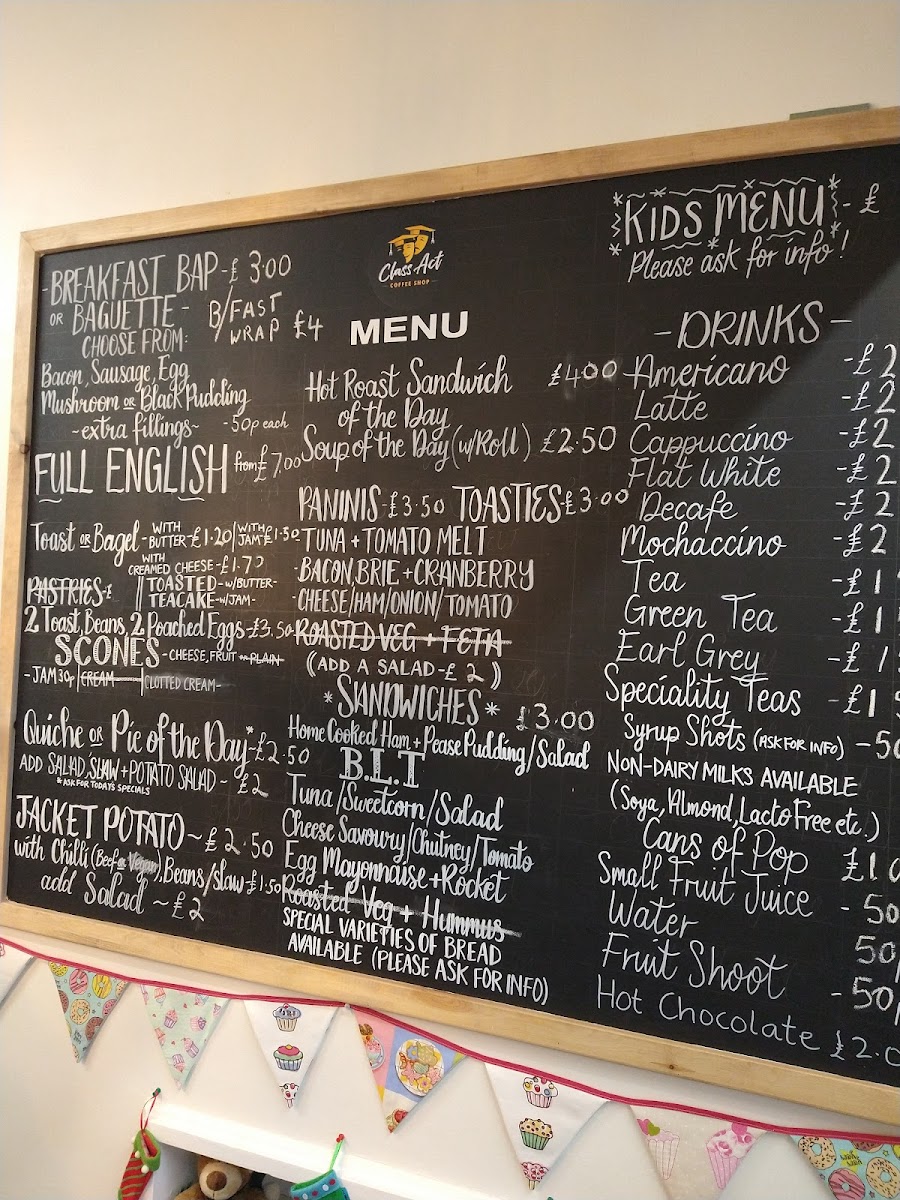 -BREAKFAST BAP-£ 3.00
OR BAGUETTE-
B/FAST
WRAP £4
CHOOSE FROM:
Bacon, Sausage, Egg
Mushroom OR Black Pudding
~extra fillings~ -50p each
FULL ENGLISH from £7.00
Toast OR Bagel WITH BUTTER-£1.20/WITH JAM-£1.50
WITH CREAMED CHEESE-£1.70
PASTRIES-£
TOASTED -W/BUTTER-
TEACAKE -W/JAM-
2 Toast, Beans, 2 Poached Eggs-£3.50
SCONES -CHEESE, FRUIT OR PLAIN-
-JAM 30p/CREAM /CLOTTED CREAM-
Quiche OR Pie of the Day*-£2.50
ADD SALAD, SLAW + POTATO SALAD - £2
*ASK FOR TODAY'S SPECIALS
JACKET POTATO ~ £2.50
with Chilli (Beef or Vegan), Beans/Slaw-£1.50
add Salad ~£2
Class Act
COFFEE SHOP
MENU
Hot Roast Sandwich £4.00
of the Day
Soup of the Day (w/Roll) £2.50
PANINIS-£3.50 TOASTIES-£3.00
-TUNA + TOMATO MELT
-BACON, BRIE + CRANBERRY
-CHEESE/HAM/ONION/TOMATO
-ROASTED VEG + FETA
(ADD A SALAD-£2)
*SANDWICHES* £3.00
Home Cooked Ham + Pease Pudding/Salad
B.L.T
Tuna/Sweetcorn/Salad
Cheese Savoury/Chutney/Tomato
Egg Mayonnaise + Rocket
Roasted Veg + Hummus
SPECIAL VARIETIES OF BREAD
AVAILABLE (PLEASE ASK FOR INFO)
KIDS MENU - £
Please ask for info!
-DRINKS-
Americano -£2
Latte -£2
Cappuccino -£2
Flat White -£2
Decafe -£2
Mochaccino -£2
Tea -£1
Green Tea -£1
Earl Grey -£1
Speciality Teas -£1
Syrup Shots (ASK FOR INFO) -50
NON-DAIRY MILKS AVAILABLE
(Soya, Almond, Lacto Free etc.)
Cans of Pop £1.0
Small Fruit Juice - 50
Water 50p
Fruit Shoot -50p
Hot Chocolate £2.0